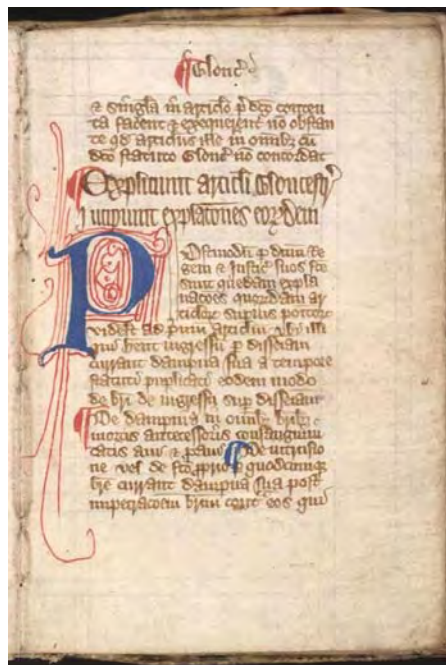 Glouc̄
& singła in articlo p̄dc̄o conten
ta facent & exequerent̄ nō obstan
te qd̄ articlus ille in omnibȝ cū
dc̄o statuto Glouc̄ nō concordat
Expliciunt articli Gloucestr̄
incipiunt explac̄ones eorȝdem
Postmodū p dn̄m Re
gem & Justic̄ suos fc̄e
sunt quedam expla
nac̄oes quorȝdam ar
ticlorȝ supius
videłt ad p̄mū articlū
qui hent ingressū p disseiam
currant dampna sua a tempore
statuti puplicati eodem modo
de bri de ingressu sup disseiam
De dampnis in omibȝ bribȝ
mortis antecessoris consanguini
tatis aui & p̄aui De intrusio
ne vel de fc̄o p̄prio p quodcumqȝ
bre currant dampna post
impetrac̄oem bris cont̄ eos qui